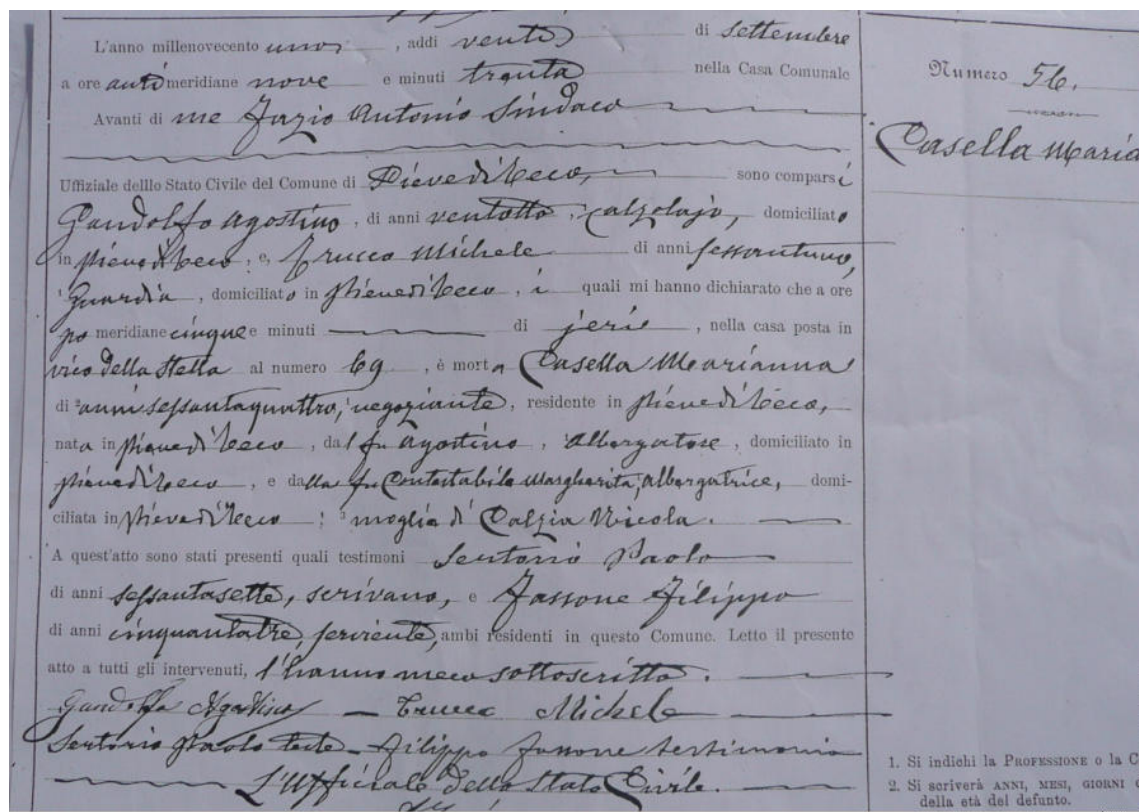 L'anno millenovecento uno, addi venti di Settembre
a ore antimeridiane nove e minuti trenta nella Casa Comunale
Avanti di me Fazio Antonio Sindaco
Uffiziale delllo Stato Civile del Comune di Pieve di Teco, sono comparsi
Gandolfo Agostino, di anni ventotto, calzolajo, domiciliato
in Pieve di Teco, e, Trucco Michele di anni sessantuno,
Guardia, domiciliato in Pieve di Teco, i quali mi hanno dichiarato che a ore
po meridiane cinque e minuti di jeri, nella casa posta in
vico della Stella al numero 69, è morta Casella Marianna
di anni sessantaquattro, negoziante, residente in Pieve di Teco,
nata in Pieve di Teco, dal fu Agostino, Albergatore, domiciliato in
Pieve di Teco, e dalla fu Contestabile Margherita, albergatrice, domi-
ciliata in Pieve di Teco; moglie di Calzia Nicola.
A quest'atto sono stati presenti quali testimoni Sertorio Paolo
di anni sessantasette, scrivano, e Fassone Filippo
di anni cinquantatre, serviente, ambi residenti in questo Comune. Letto il presente
atto a tutti gli intervenuti, l'hanno meco sottoscritto.
Gandolfo Agostino - Trucco Michele
Sertorio Paolo teste - Filippo Fassone testimonio
L'Ufficiale dello Stato Civile.
Numero 56.
Casella Maria
1. Si indichi la PROFESSIONE o la C
2. Si scriverà ANNI, MESI, GIORNI
della età del defunto.